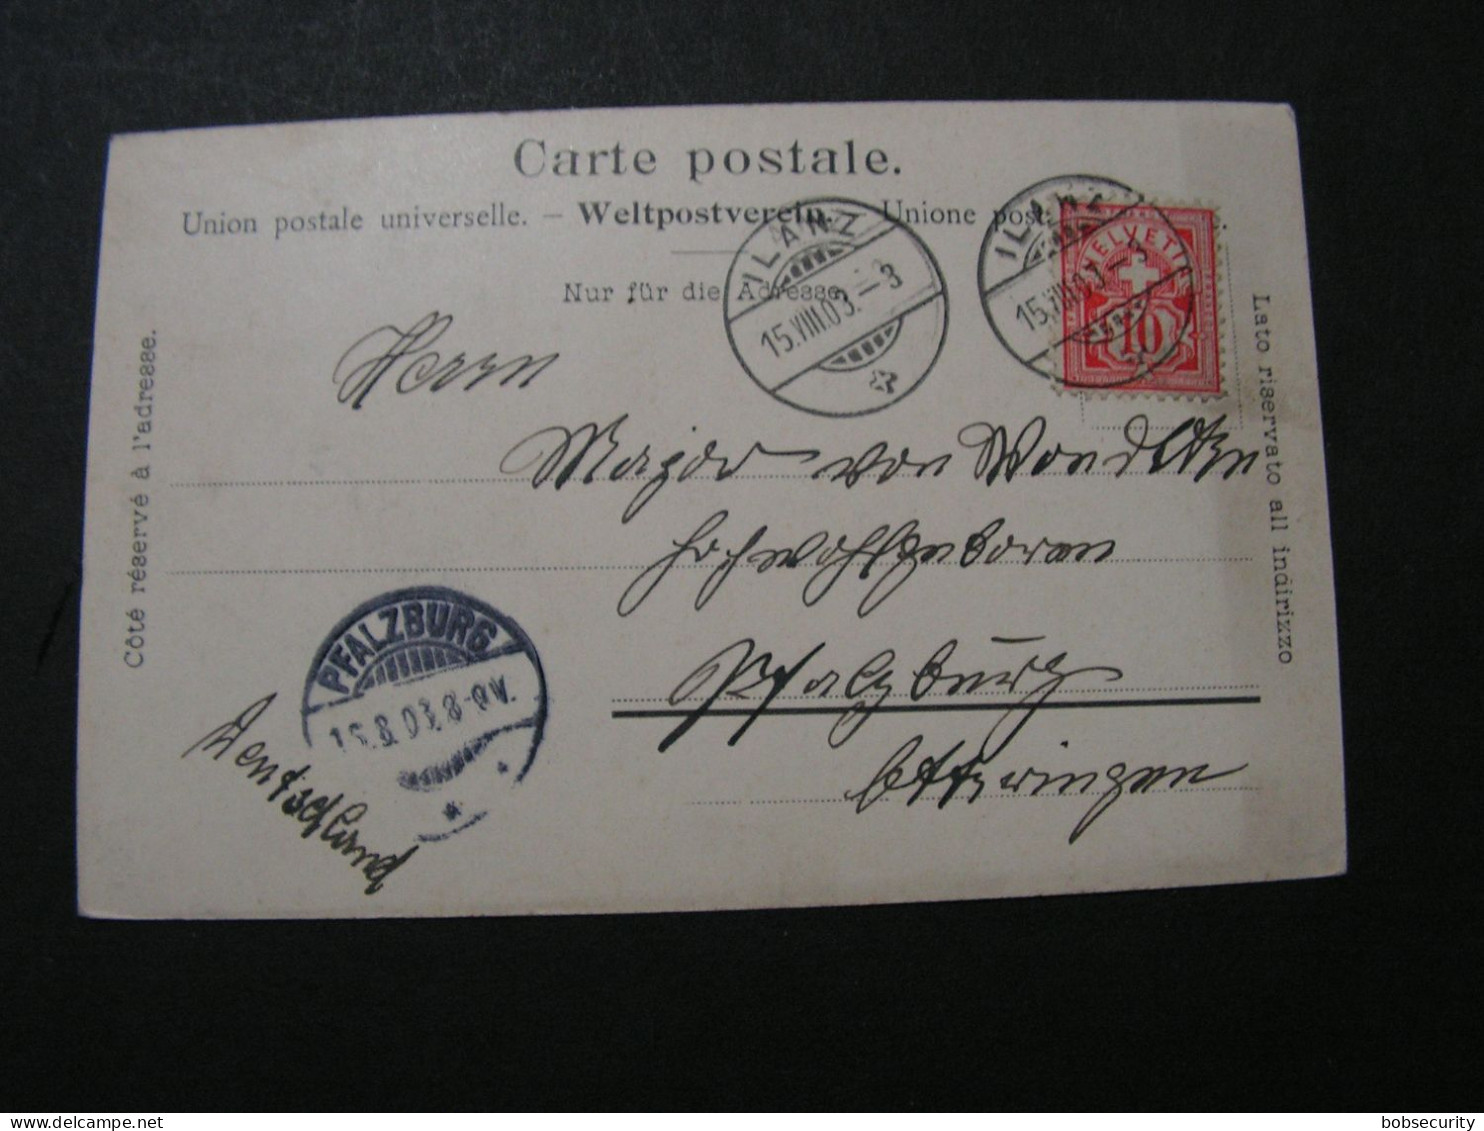 Carte postale.
Union postale universelle. — Weltpostverein. — Unione post
Nur für die Adresse
Côté réservé à l'adresse.
Lato riservato all indirizzo
ILANZ
15.VIII.03.—3
ILANZ
15.VIII.03.—3
HELVETI
10
Herrn
Major von
Hochwohlgeboren
Pfalzburg
PFALZBURG
.8.03.8-9V.
Deutschland
bobsecurity